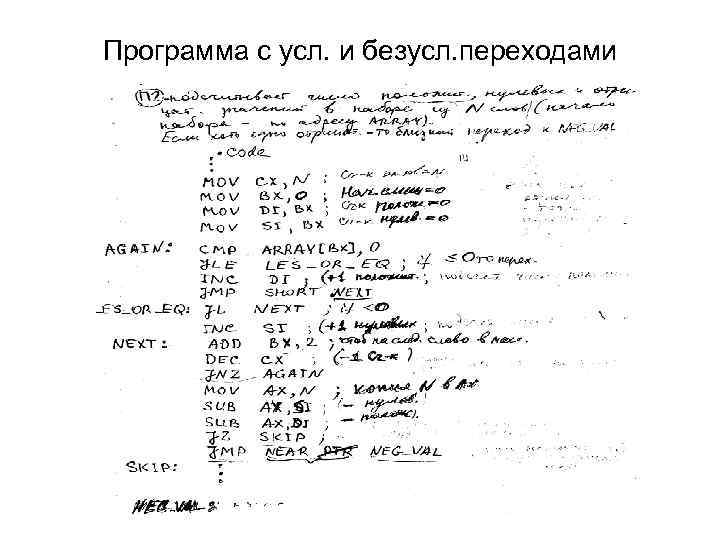 Программа с усл. и безусл.переходами
П2 - подсчитывает число положит., нулевых и отри-
цат. значений в наборе из N слов (начало
набора - по адресу ARRAY).
Если хоть одно отриц. - то близкий переход к NEG_VAL
.code
MOV CX, N ;
MOV BX, 0 ; =0
MOV DI, BX ; Сч-к полож. =0
MOV SI, BX ; Сч-к нулев. =0
AGAIN: CMP ARRAY[BX], 0
JLE LES_OR_EQ ; if ≤ 0 то перех.
INC DI ; (+1 положит.
JMP SHORT NEXT
LES_OR_EQ: JL NEXT ; if <0
INC SI ; (+1 нулевых
NEXT: ADD BX, 2 ; слово в мас.
DEC CX ; (-1 Сч-к)
JNZ AGAIN
MOV AX, N ; копия N в AX
SUB AX, SI ; - нулев.
SUB AX, DI ; - полож.
JZ SKIP ;
JMP NEAR PTR NEG_VAL
SKIP:
NEG_VAL: